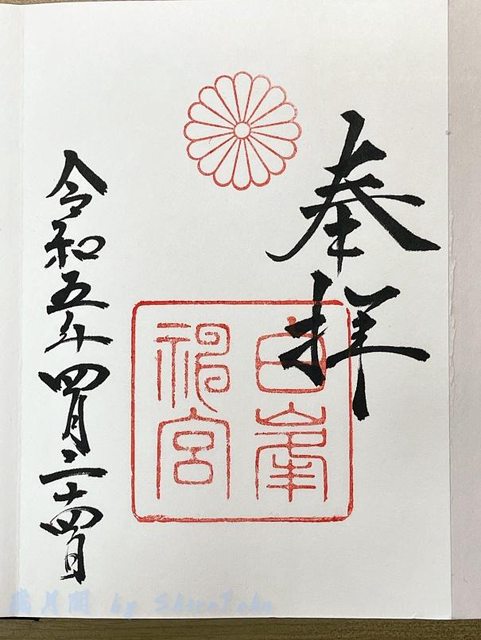 奉拝
白峯
神宮
令和五年四月二十四日
by